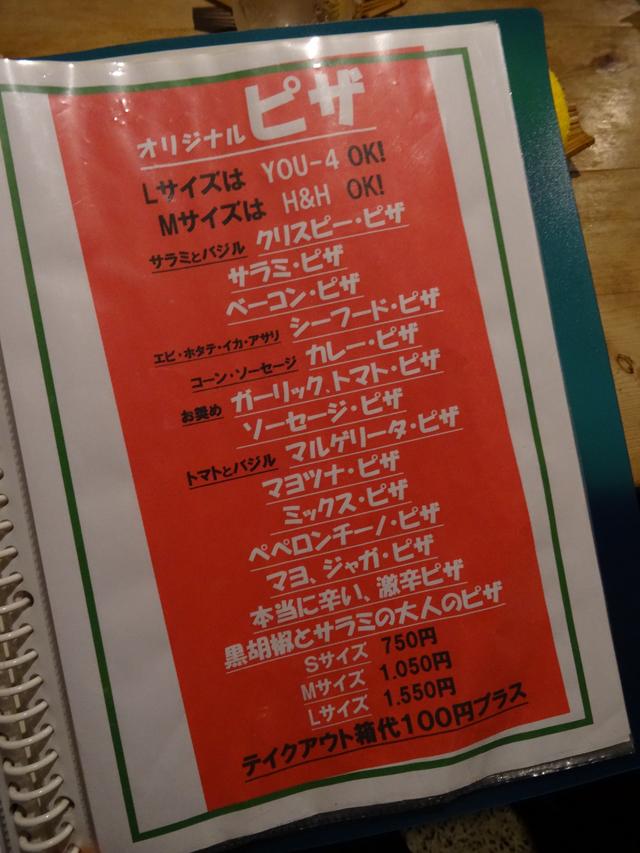 オリジナル ピザ
Lサイズは YOU-4 OK!
Mサイズは H&H OK!
サラミとバジル クリスピー・ピザ
サラミ・ピザ
ベーコン・ピザ
エビ・ホタテ・イカ・アサリ シーフード・ピザ
コーン・ソーセージ カレー・ピザ
お奨め ガーリック、トマト・ピザ
ソーセージ・ピザ
トマトとバジル マルゲリータ・ピザ
マヨツナ・ピザ
ミックス・ピザ
ペペロンチーノ・ピザ
マヨ、ジャガ・ピザ
本当に辛い、激辛ピザ
黒胡椒とサラミの大人のピザ
Sサイズ 750円
Mサイズ 1.050円
Lサイズ 1.550円
テイクアウト箱代100円プラス